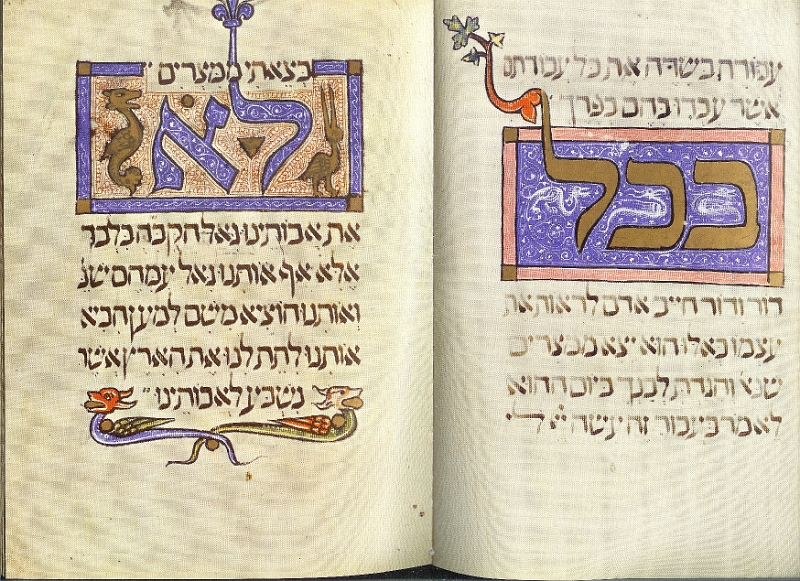 עבודה בשדה את כל עבודתם
אשר עבדו בהם בפרך
בכל
דור ודור חייב אדם לראות את
עצמו כאלו הוא יצא ממצרים
שנא והגדת לבנך ביום ההוא
לאמר בעבור זה עשה לי
בצאתי ממצרים
לא
את אבותינו גאל הקבה בלבד
אלא אף אותנו גאל עמהם שנ
ואותנו הוציא משם למען הביא
אותנו לתת לנו את הארץ אשר
נשבע לאבותינו